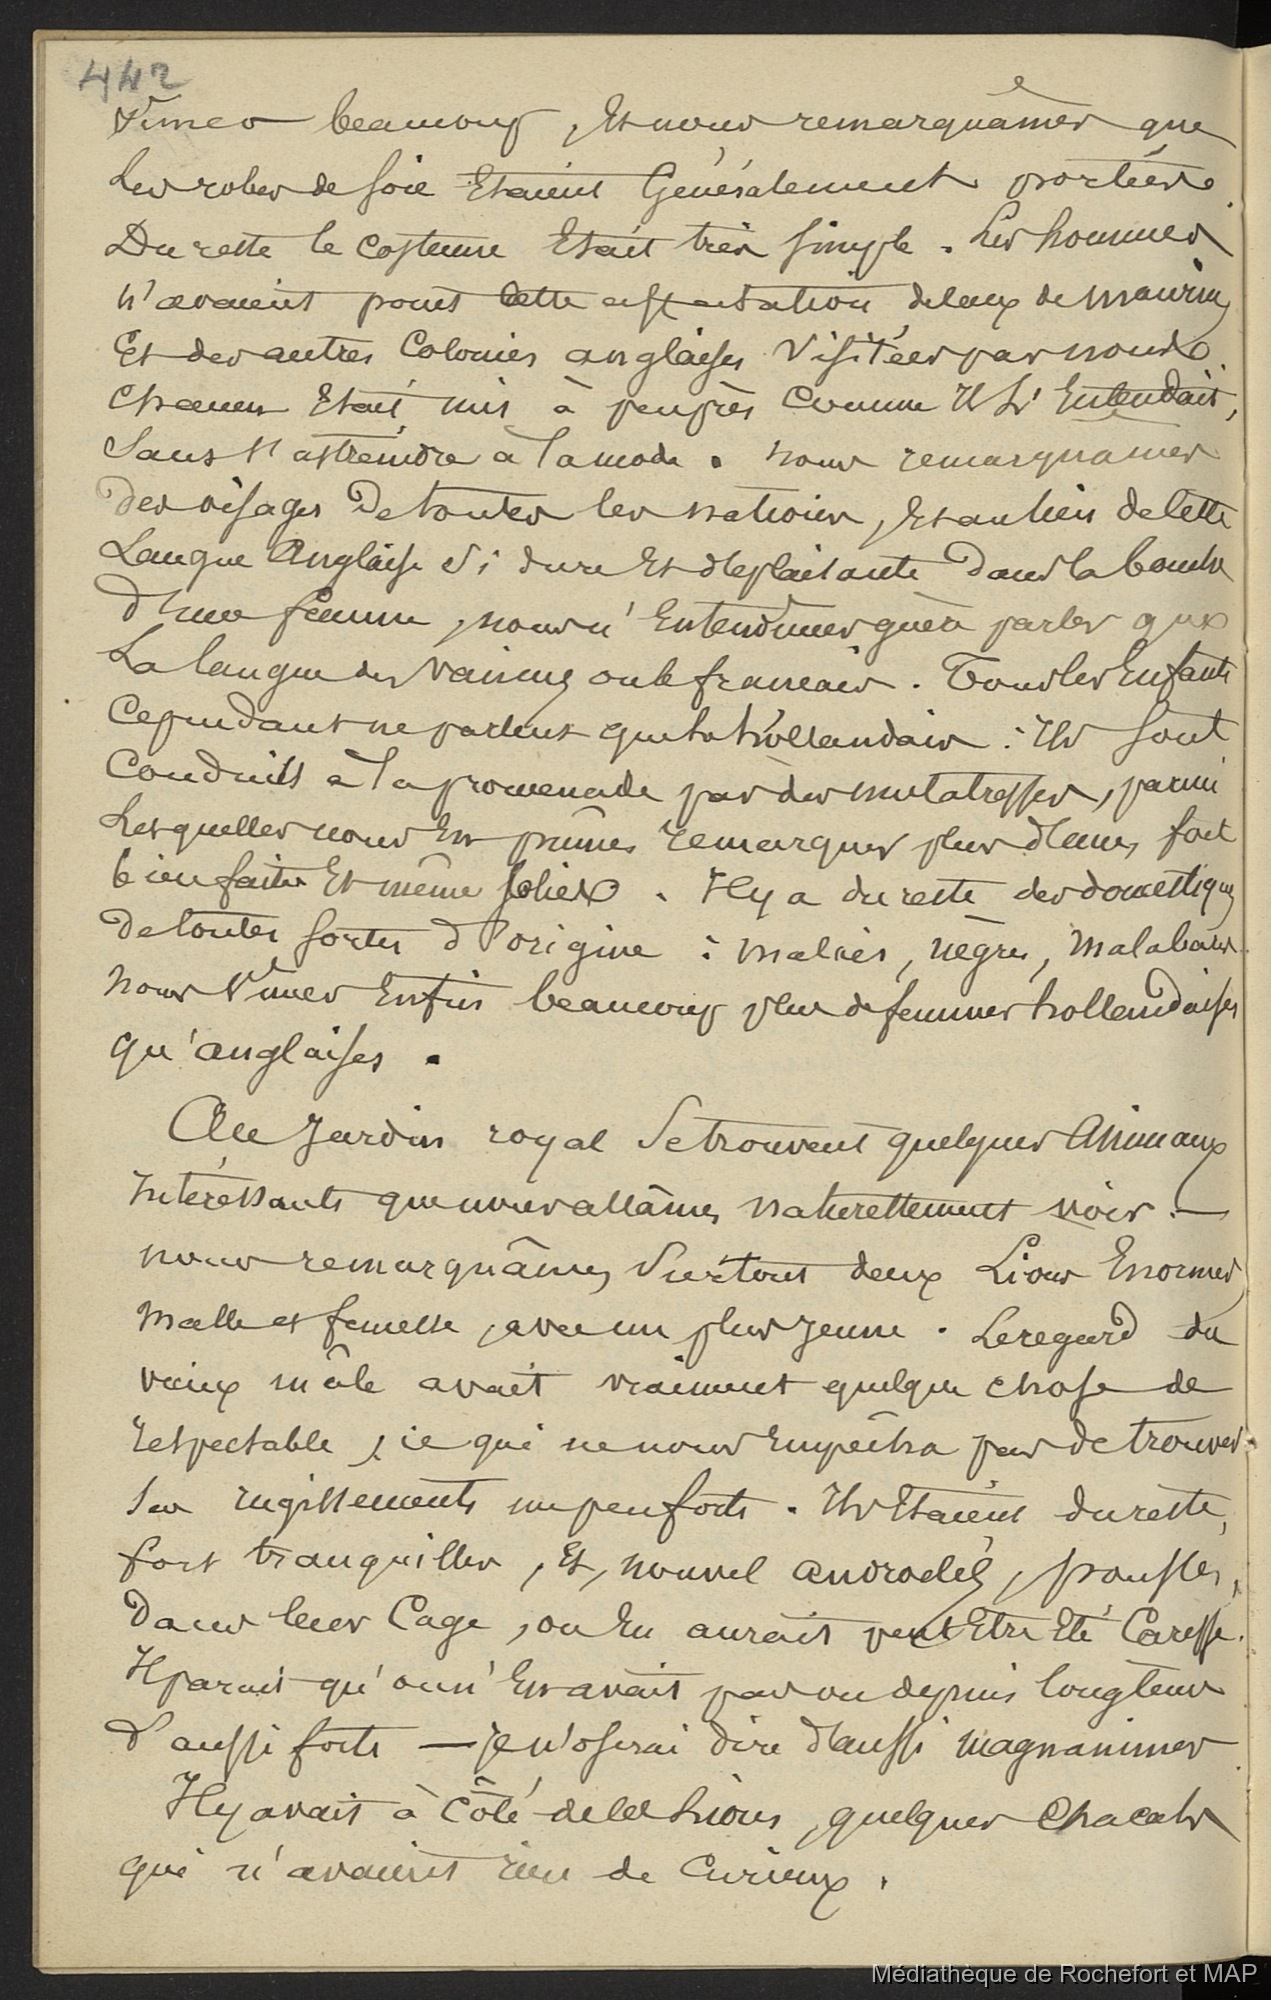 442
Vîmes beaucoup, Et nous remarquâmes que
Les robes de soie Etaient Généralement portées.
Du reste le costume Etait très simple. Les hommes
n'avaient point cette affectation de ceux de maurice
Et des autres Colonies anglaises Visitées par nous.
Chacun Etait mis à peu près Comme Il L'Entendait,
Sans s'astreindre à la mode. nous remarquâmes
Des visages De toutes les nations, Et au lieu de cette
Langue Anglaise si dure Et déplaisante Dans la bouche
d'une femme, nous n'Entendîmes guère parler que
La langue des vaincus ou le français. Tous les Enfants
Cependant ne parlent que le hollandais : Ils sont
Conduits à la promenade par des mulatresses, parmi
Lesquelles nous En pûmes remarquer plus d'une, fort
bien faites Et même jolies. Il y a du reste des domestiques
De toutes sortes d'origine : malais, nègres, Malabars.
Nous Vîmes Enfin beaucoup plus de femmes hollandaises
qu'anglaises.
Au Jardin royal Se trouvent quelques Animaux
Intéressants que nous allâmes naturellement voir. —
nous remarquâmes Surtout deux Lions Enormes,
Malle et femelle, avec un plus jeune. Le regard du
vieux mâle avait vraiment quelque chose de
respectable, ce qui ne nous Empêcha pas de trouver
Ses rugissements un peu forts. Ils Etaient du reste,
fort tranquilles, Et, nouvel androclès, poussés,
Dans leur Cage, on En aurait peut Etre Eté Caressé.
Il parait qu'on n'En avait pas vu depuis longtems
d'aussi forts — je n'oserai dire d'aussi magnanimes.
Il y avait à côté de ces Lions, quelques Chacals
qui n'avaient rien de Curieux.
Médiathèque de Rochefort et MAP